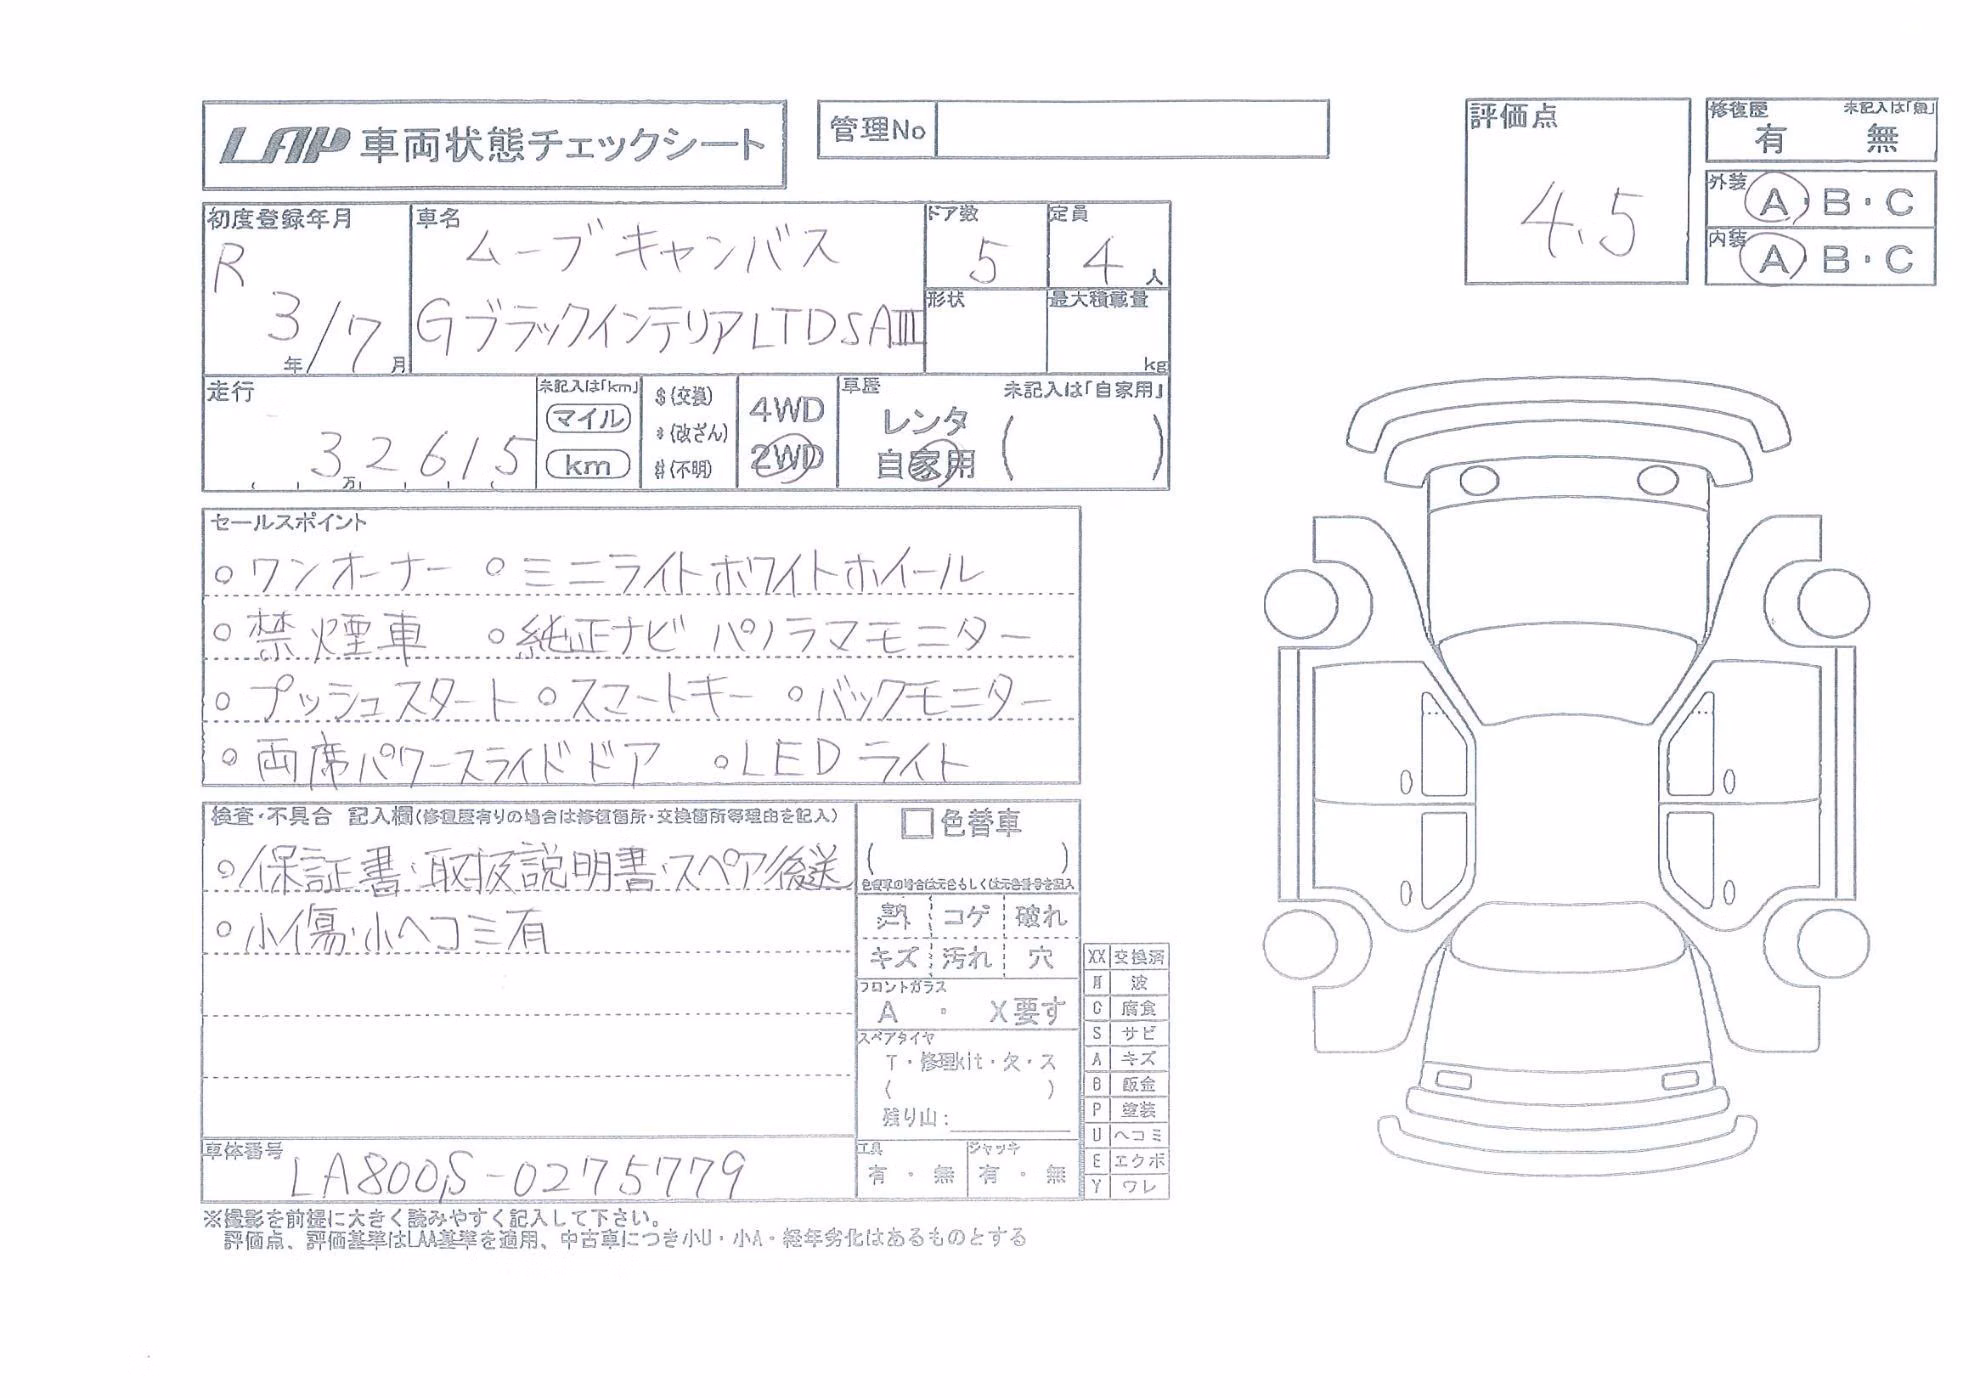 LAP 車両状態チェックシート
管理No
評価点
4.5
修復歴 未記入は「無」
有 無
外装 A・B・C
内装 A・B・C
初度登録年月
R
3年/7月
車名
ムーブキャンバス
GブラックインテリアLTDSAⅢ
ドア数
5
定員
4人
形状
最大積載量
kg
走行
32615
万
未記入は「km」
マイル
km
$(交換)
*(改ざん)
#(不明)
4WD
2WD
車歴 未記入は「自家用」
レンタ
自家用
( )
セールスポイント
○ワンオーナー ○ミニライトホワイトホイール
○禁煙車 ○純正ナビ パノラマモニター
○プッシュスタート ○スマートキー ○バックモニター
○両席パワースライドドア ○LEDライト
検査・不具合 記入欄(修復歴有りの場合は修復箇所・交換箇所等理由を記入)
○保証書・取扱説明書・スペア後送
○小傷・小ヘコミ有
□色替車
( )
色替車の場合は元色もしくは元色番号を記入
コゲ 破れ
キズ 汚れ 穴
フロントガラス
A ・ X要す
スペアタイヤ
T・修理kit・欠・ス
( )
残り山:
工具
有 ・ 無
ジャッキ
有 ・ 無
XX 交換済
W 波
C 腐食
S サビ
A キズ
B 鈑金
P 塗装
U ヘコミ
E エクボ
Y ワレ
車体番号
LA800S-0275779
※撮影を前提に大きく読みやすく記入して下さい。
評価点、評価基準はLAA基準を適用、中古車につき小U・小A・経年劣化はあるものとする